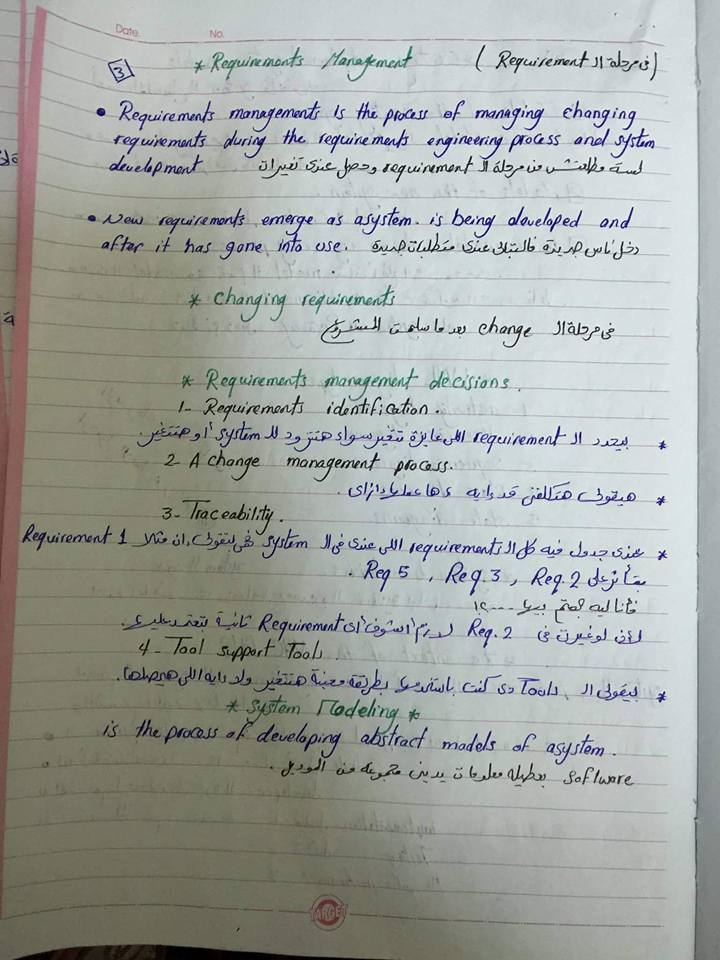 Date. No.
3
* Requirements Management ( فى مرحلة الـ Requirement )
• Requirements managements is the process of managing changing
requirements during the requirements engineering process and system
development. لسة مطلعتش من مرحلة الـ requirement وحصل عندى تغيرات
• New requirements emerge as asystem is being developed and
after it has gone into use. دخل ناس جديدة فالتبالى عندى متطلبات جديدة
* Changing requirements
فى مرحلة الـ change بعد ما سلمت المشروع
* Requirements management decisions.
1- Requirements identification.
* بيحدد الـ requirement اللى عايزة تتغير سواء هتزود للـ System أو هتتغير.
2- A change management process.
* هيقولى هتكلفنى قد ايه وهاعملها ازاى.
3- Traceability.
* عندى جدول فيه كل الـ requirements اللى عندى فى الـ system فهى بتقولى ان مثلا Requirement 1
بتأثر على Req. 2 , Req. 3 , Req 5 .
فأنا ليه بهتم بيها ....؟!
لأن لو غيرت فى Req. 2 لازم أشوف أى Requirement تانية بتعتمد عليها.
4- Tool support Tools.
* بيقولى الـ Tools دى كنت باستخدمها بطريقة معينة هتتغير ولا ايه اللى هيحصلها.
* System Modeling *
is the process of developing abstract models of asystem.
Software بعطيله معلومات يدينى مجموعه من الموديل.
TARGET